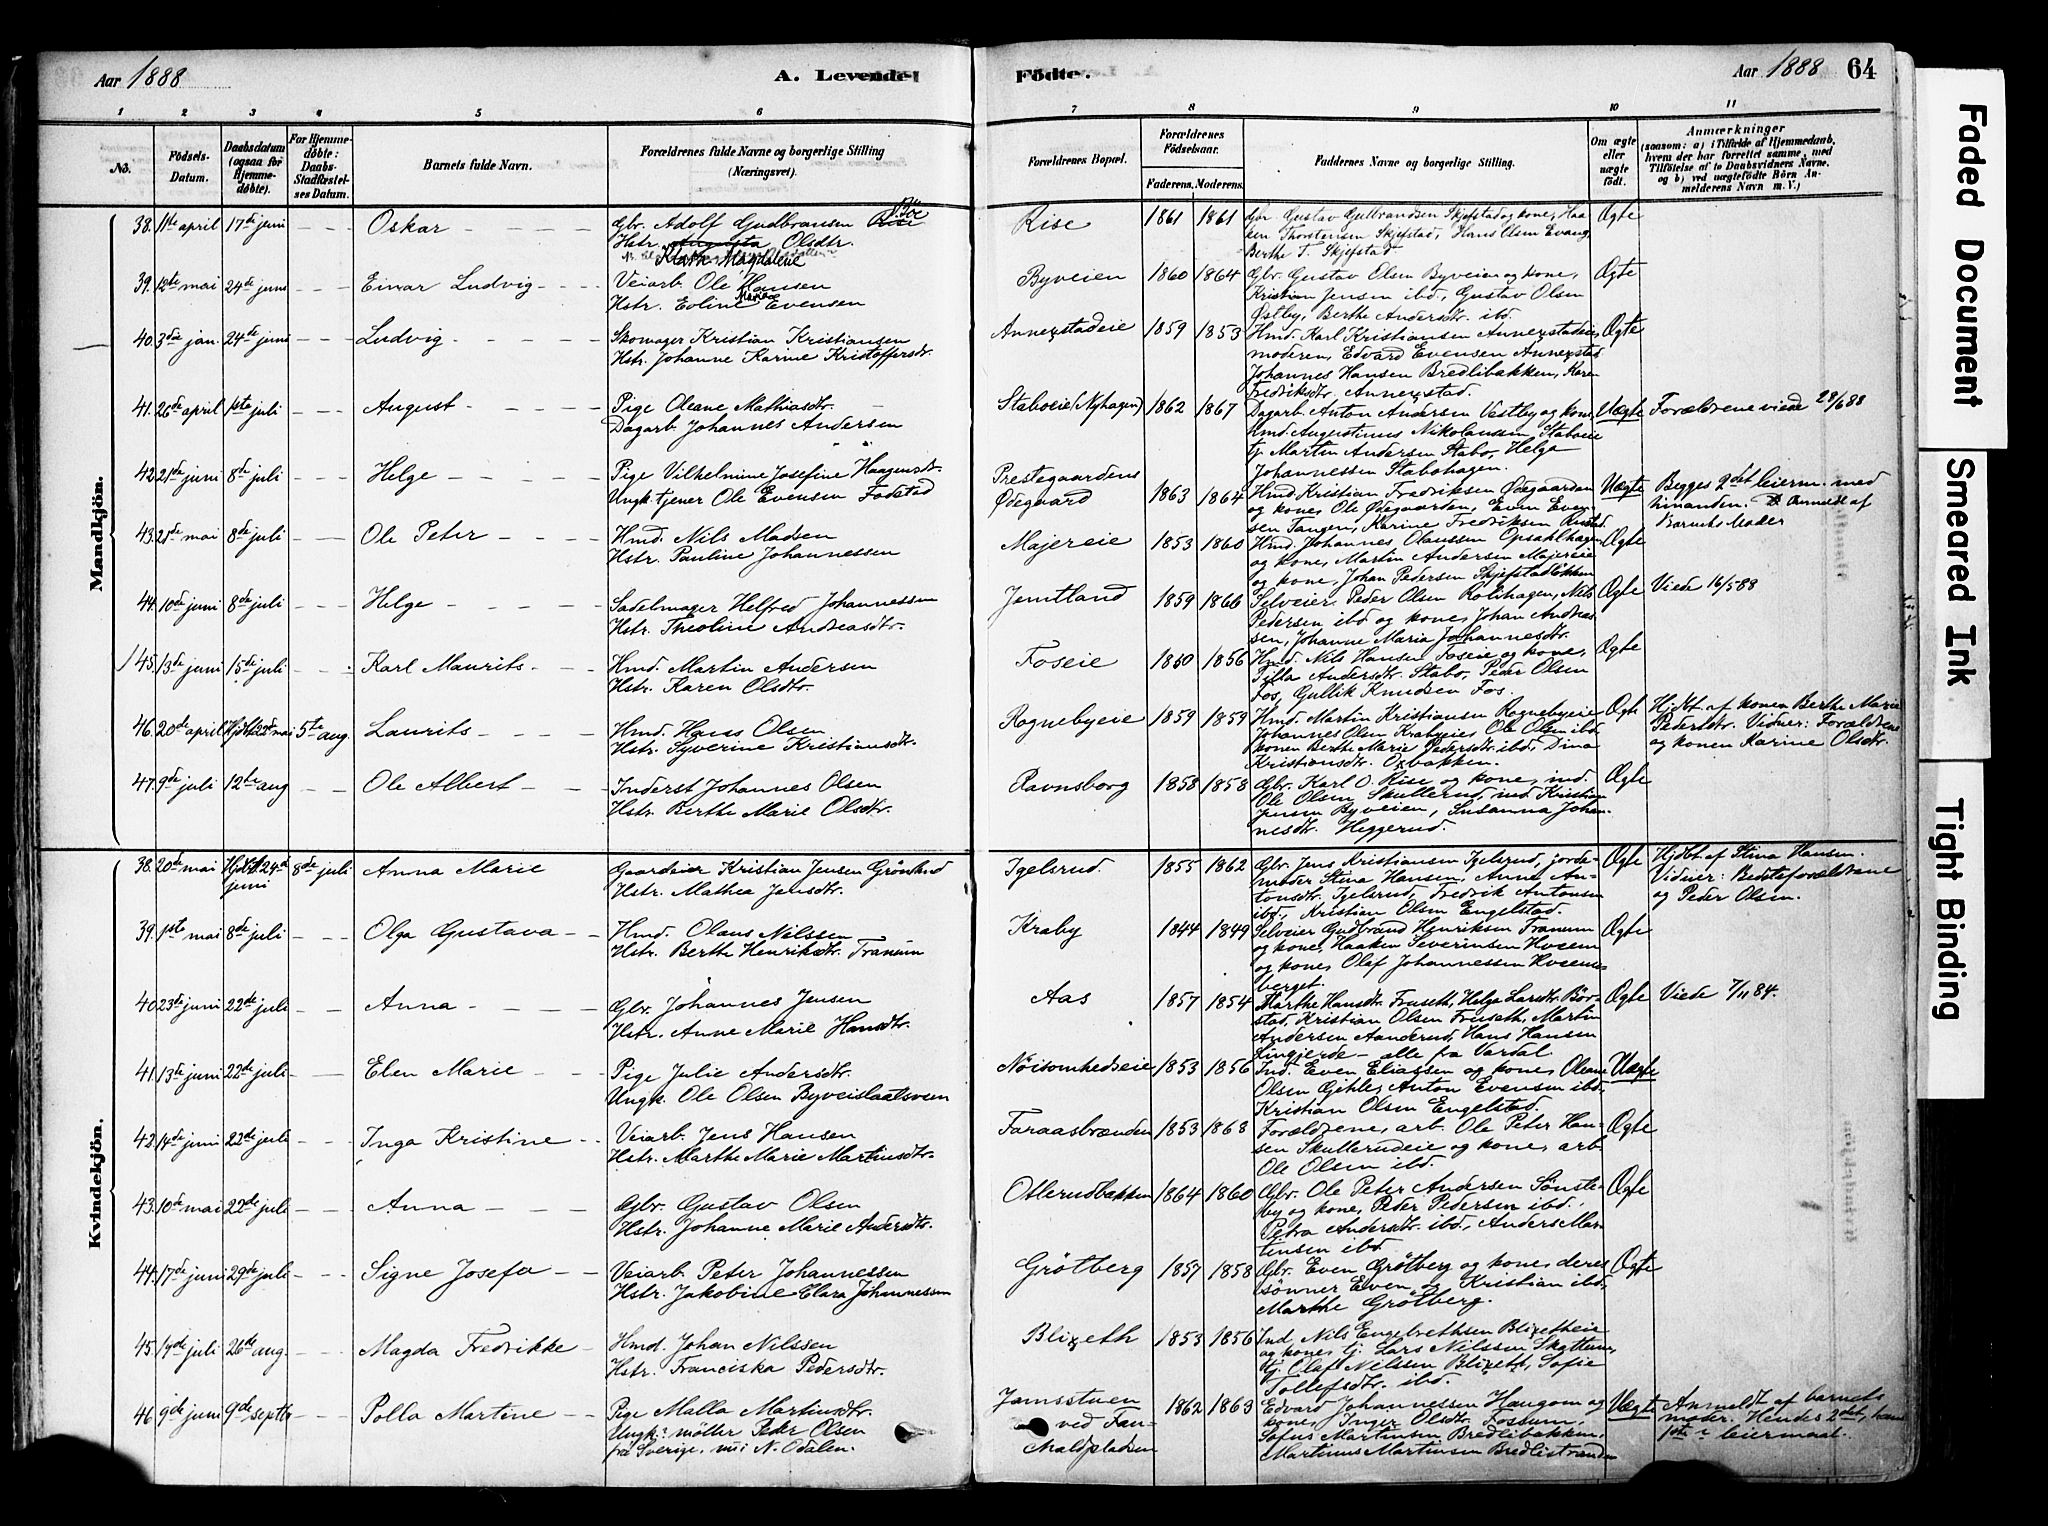 Aar 1888
A. Levende
Födte.
Aar 1888
64
1 2 3 4 5 6 7 8 9 10 11
No.
Födsels-Datum.
Daabsdatum (ogsaa for Hjemmedöbte).
For Hjemmedöbte: Daabs-Stadfæstelses Datum.
Barnets fulde Navn.
Forældrenes fulde Navne og borgerlige Stilling (Næringsvei).
Forældrenes Bopæl.
Forældrenes Födselsaar.
Faderens. Moderens.
Faddernes Navne og borgerlige Stilling.
Om ægte eller uægte födt.
Anmærkninger
(saasom: a) i Tilfælde af Hjemmedaab, hvem der har forrettet samme, med Tilföielse af to Daabsvidners Navne, og b) ved uægtefödte Börn Anmelderens Navn m. V.)
Mandkjön.
38. 11te april 17de juni - - - Oskar - - - - Gbr. Adolf Gudbransen Rise 1861 1861 Gbr. Gustav Gulbrandsen Skjefstad og kone, Haa- Ægte
Hstr. Olsdtr. ken Thorstensen Skjefstad, Hans Olsen Evang,
Klara Magdalene Berthe T. Skjefstad
39. 12te mai 24de juni - - - Einar Ludvig - - - Veiarb. Ole Hansen Byveien 1860 1864 Gbr. Gustav Olsen Byveien og kone, Ægte
Hstr. Eoline Marie Evensen Kristian Jensen ibd., Gustav Olsen
Østby, Berthe Andersdtr. ibd.
40. 3die jan. 24de juni - - - Ludvig - - - Skomager Kristian Kristiansen Annexstadeie 1859 1853 Hmd. Karl Kristiansen Annexstadeie, Ægte
Hstr. Johanne Karine Kristoffersdtr. moderen, Edvard Evensen Annexstad
Johannes Hansen Bredlibakken, Karen
Fredriksdtr. Annexstad.
41. 26de april 1ste juli - - - August - - - Pige Oleane Mathiasdtr. Staboeie (Nyhagen) 1862 1867 Dagarb. Anton Andersen Vestby og kone, Uægte Forældrene viede 28/6 88
Dagarb. Johannes Andersen Hmd. Augustinus Nikolaussen Staboeie
tj. Martin Andersen Stabo, Helga
Johannessen Stabohagen.
42. 21de juni 8de juli - - - Helge - - - Pige Vilhelmine Josefine Haagensdtr. Prestegaardens 1863 1864 Hmd. Kristian Fredriksen Ødegaarden Uægte Begges 2det leierm. med
Ungk. tjener Ole Evensen Fodstad Ødegaard og kone, Ole Ødegaarden, Even Even- hinanden. Anmeldt af
sen Tangen, Karine Fredriksen Rustad. Barnets Moder
43. 21de mai 8de juli - - - Ole Peter - - - Hmd. Nils Madsen Majereie 1853 1860 Hmd. Johannes Olaussen Opsahlhagen Ægte
Hstr. Pauline Johannessen og kone, Martin Andersen Majereie
og kone, Johan Pedersen Skjefstadløkken
44. 10de juni 8de juli - - - Helge - - - Sadelmager Helfred Johannessen Jemtland 1859 1866 Selveier Peder Olsen Rolihagen, Nils Ægte Viede 16/5 88
Hstr. Theoline Andreasdtr. Pedersen ibd og kone, Johan Andreas-
sen, Johanne Maria Johannesdtr.
45. 13de juni 15de juli - - - Karl Maurits - - Hmd. Martin Andersen Foseie 1850 1856 Hmd. Nils Hansen Foseie og kone, Ægte
Hstr. Karen Olsdtr. Andersdtr. Stabo, Peder Olsen
Fos, Gullik Knudsen Fos.
46. 20de april Hjdbt 22de mai 5te aug. Laurits - - - Hmd. Hans Olsen Rognebyeie 1859 1859 Hmd. Martin Kristiansen Rognebyeie Ægte Hjdbt. af konen Berthe Marie
Hstr. Syverine Kristiansdtr. Johannes Olsen Krabyeie, Ole Olsen ibd. Pedersdtr. Vidner: Forældrene
konen Berthe Marie Pedersdtr. ibd., Dina og konen Karine Olsdtr.
Kristiansdtr. Oxbakken.
47. 9de juli 12te aug - - - Ole Albert - - Inderst Johannes Olsen Ravnsborg 1858 1858 Gbr. Karl O. Rise og kone, ind. Ægte
Hstr. Berthe Marie Olsdtr. Ole Olsen Skullerud, ind. Kristian
Jensen Byveien, Susanna Johan-
nesdtr. Heggerud.
Kvindekjön.
38. 20de mai Hjdbt 24de juni 8de juli Anna Marie Gaardeier Kristian Jensen Grönlund Igelsrud. 1855 1862 Gbr. Jens Kristiansen Igelsrud, jorde- Ægte Hjdbt af Stina Hansen.
Hstr. Mathea Jensdtr. moder Stina Hansen, Anne An- Vidner: Bedsteforældrene
tonsdtr. Igelsrud, Fredrik Antonsen og Peder Olsen.
ibd., Kristian Olsen Engelstad.
39. 1ste mai 8de juli - - - Olga Gustava - - Hmd. Olaus Nilssen Kraby 1844 1849 Selveier Gudbrand Henriksen Tranum Ægte
Hstr. Berthe Henriksdtr. Tranum og kone, Haaken Severinsen Hosem
og kone, Olaf Johannessen Hosems-
berget.
40. 23de juni 22de juli - - - Anna - - - Gbr. Johannes Jensen Aas 1857 1854 Marthe Hansdtr. Fruseth, Helga Larsdtr. Bör- Ægte Viede 7/11 84.
Hstr. Anne Marie Hansdtr. stad, Kristian Olsen Fruseth, Martin
Andersen Aanderud, Hans Hansen
Lingjerde - alle fra Vardal
41. 13de juni 22de juli - - - Elen Marie - - Pige Julie Andersdtr. Nöisomhedseie 1853 1856 Ind. Even Eliassen og kone, Oleane Uægte
Ungk. Ole Olsen Olsen Gihle, Anton Evensen ibd.
Kristian Olsen Engelstad.
42. 14de juni 22de juli - - - Inga Kristine - - Veiarb. Jens Hansen Faraasbrænden 1853 1868 Forældrene, arb. Ole Peter Han- Ægte
Hstr. Marthe Marie Martinsdtr. sen Skullerudeie og kone, arb.
Ole Olsen ibd.
43. 10de mai 22de juli - - - Anna - - Gbr. Gustav Olsen Otlerudbakken 1864 1860 Gbr. Ole Peter Andersen Sönste- Ægte
Hstr. Johanne Marie Andersdtr. by og kone, Peder Pedersen ibd.,
Petra Andersdtr. ibd., Anders Mar-
tinsen ibd.
44. 17de juni 29de juli - - - Signe Josefa - - Veiarb. Peter Johannessen Grötberg 1857 1858 Gbr. Even Grötberg og kone, deres Ægte
Hstr. Jakobine Clara Johannessen sönner Even og Kristian ibd.,
Marthe Grötberg.
45. 14de juli 26de aug. - - - Magda Fredrikke - - Hmd. Johan Nilssen Blixeth 1853 1856 Ind. Nils Engebrethsen Blixetheie Ægte
Hstr. Franciska Pedersdtr. og kone, tj. Lars Nilssen Skattum,
tj. Olaf Nilssen Blixeth, Sofie
Tollefsdtr. ibd.
46 9de juni 9de septb - - - Polla Martine - - Pige Malla Martinsdtr. Jomsstuen 1862 1863 Edvard Johannessen Haugom og Uægte Anmeldt af barnets
Ungk. möller Peder Olsen ved Fau- kone, Inger Olsdtr. Fossum, moder. Hendes 2det, hans
fra Sverige, nu i N. Odalen. chaldpladsen Sofus Martinsen Bredlibakken, 1ste leiermaal.
Martinus Martinsen Bredlistranden
Faded Document
Smeared Ink
Tight Binding